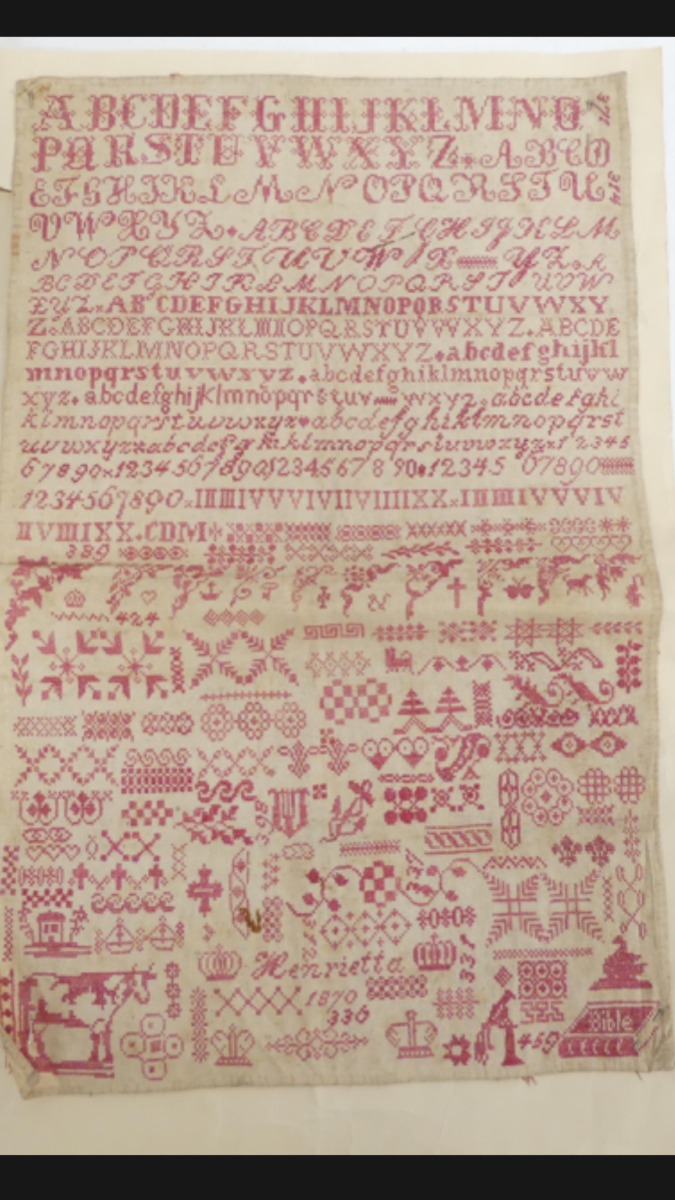 ABCDEFGHIJKLMNO
PQRSTUVWXYZ ABCD
EFGHIKLMNOPQRSTU
VWXYZ ABCDEFGHIJKLM
NOPQRSTUVW X YZ A
BCDEFGHIKLMNOPQRSTUVW
XYZ ABCDEFGHIJKLMNOPQRSTUVWXY
Z ABCDEFGHIJKLMNOPQRSTUVWXYZ ABCDE
FGHIJKLMNOPQRSTUVWXYZ abcdefghijkl
mnopqrstuvwxyz abcdefghiklmnopqrstuvw
xyz abcdefghijklmnopqrstuv wxyz abcdefghi
klmnopqrstuvwxyz abcdefghiklmnopqrst
uvwxyz abcdefghiklmnopqrstuvwxyz 12345
67890 1234567890 1234567890 12345 67890
1234567890 IIIIIIIVVVIVIIVIIIIXX IIIIIIIVVVIV
IIVIIIIXX CDM
339
424
Henrietta
331
1870
336
Bible
459